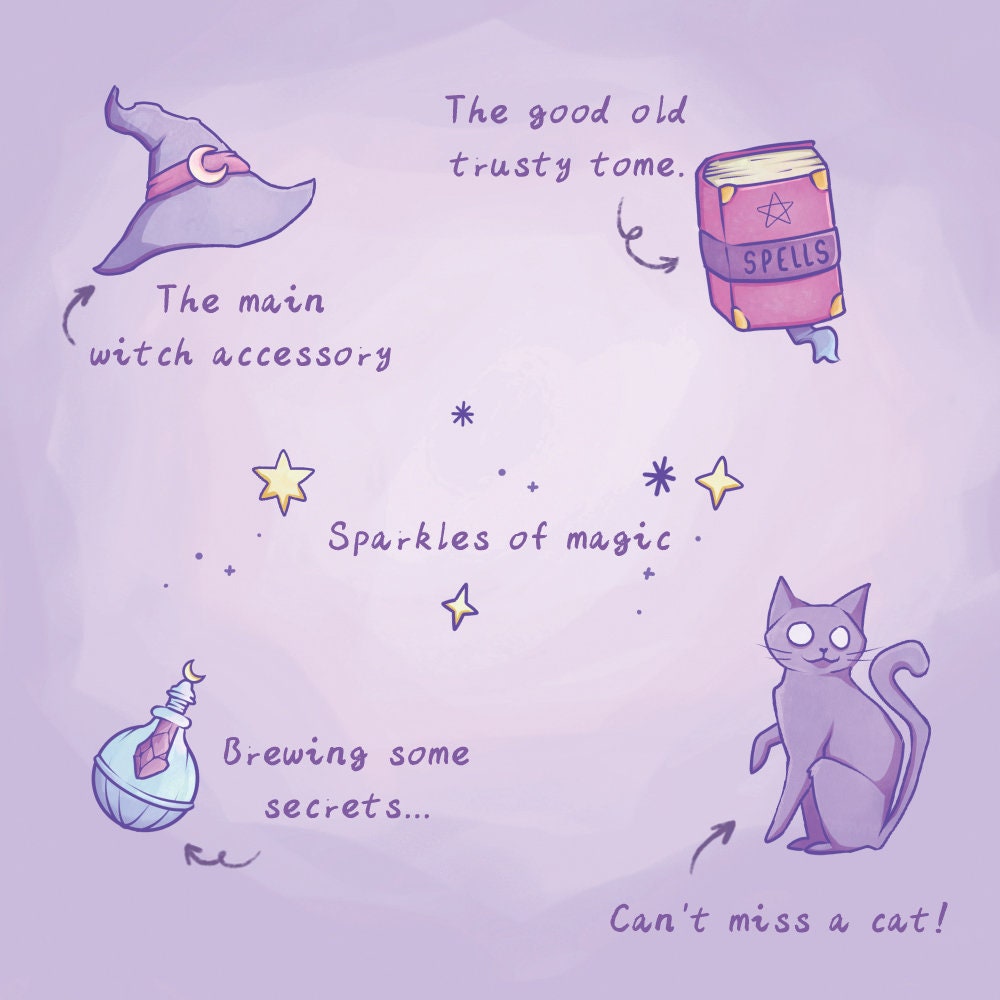 The good old
trusty tome.
SPELLS
The main
witch accessory
Sparkles of magic
Brewing some
secrets...
Can't miss a cat!